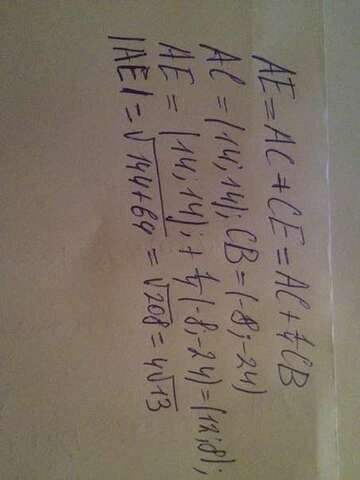 AE = AC + CE = AC + 1/4 CB
AC = (14; 14); CB = (-8; -24)
AE = (14; 14); + 1/4 (-8; -24) = (12; 8);
|AE| = √144+64 = √208 = 4√13